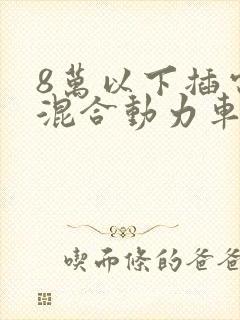 8萬以下插
混合動力車
喫而條的爸爸